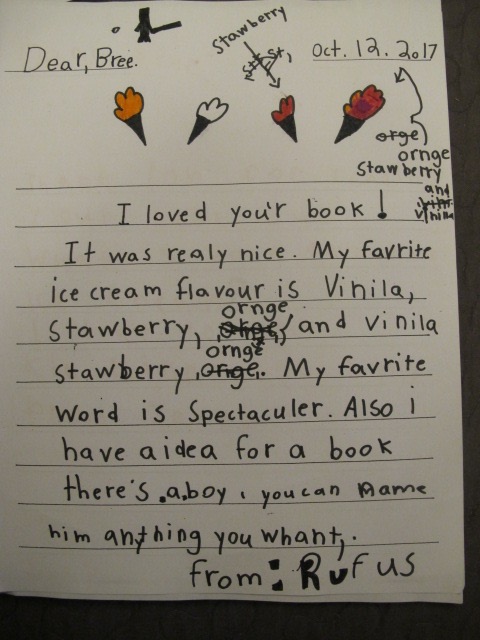 Stawberry
Dear, Bree.
Oct. 12. 2017
orge
ornge
Stawberry
and
Vinilla
I loved you'r book!
It was realy nice. My favrite
ice cream flavour is Vinila,
ornge
Stawberry, and Vinila
ornge
stawberry, . My favrite
word is Spectaculer. Also i
have a idea for a book
there's .a boy, you can name
him anything you whant,.
from: Rufus